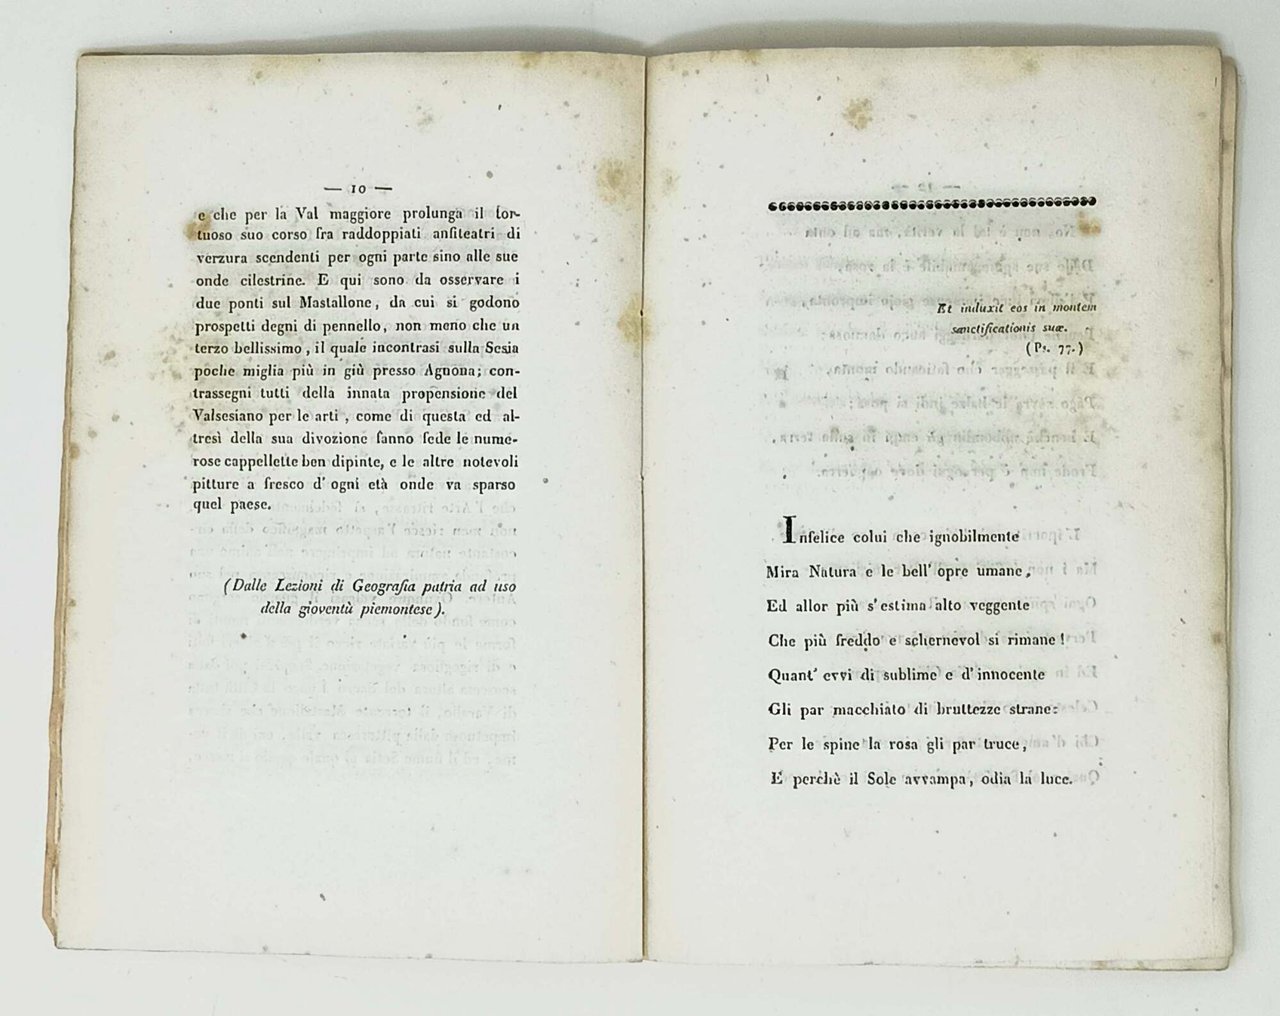 — 10 —
e che per la Val maggiore prolunga il tor-
tuoso suo corso fra raddoppiati anfiteatri di
verzura scendenti per ogni parte sino alle sue
onde cilestrine. E qui sono da osservare i
due ponti sul Mastallone, da cui si godono
prospetti degni di pennello, non meno che un
terzo bellissimo, il quale incontrasi sulla Sesia
poche miglia più in giù presso Agnona; con-
trassegni tutti della innata propensione del
Valsesiano per le arti, come di questa ed al-
tresì della sua divozione fanno fede le nume-
rose cappellette ben dipinte, e le altre notevoli
pitture a fresco d' ogni età onde va sparso
quel paese.
(Dalle Lezioni di Geografia patria ad uso
della gioventù piemontese).
Et induxit eos in montem
sanctificationis suæ.
(Ps. 77.)
Infelice colui che ignobilmente
Mira Natura e le bell' opre umane,
Ed allor più s' estima alto veggente
Che più freddo e schernevol si rimane!
Quant' evvi di sublime e d' innocente
Gli par macchiato di bruttezze strane:
Per le spine la rosa gli par truce,
E perchè il Sole avvampa, odia la luce.